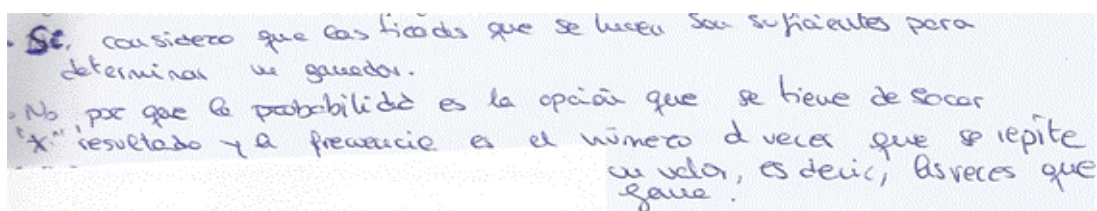 . Si. considero que las tiradas que se hacen son suficientes para
determinar un ganador.
. No, por que la probabilidad es la opción que se tiene de sacar
"x" resultado y la frecuencia es el número d veces que se repite
un valor, es decir, las veces que
gane.